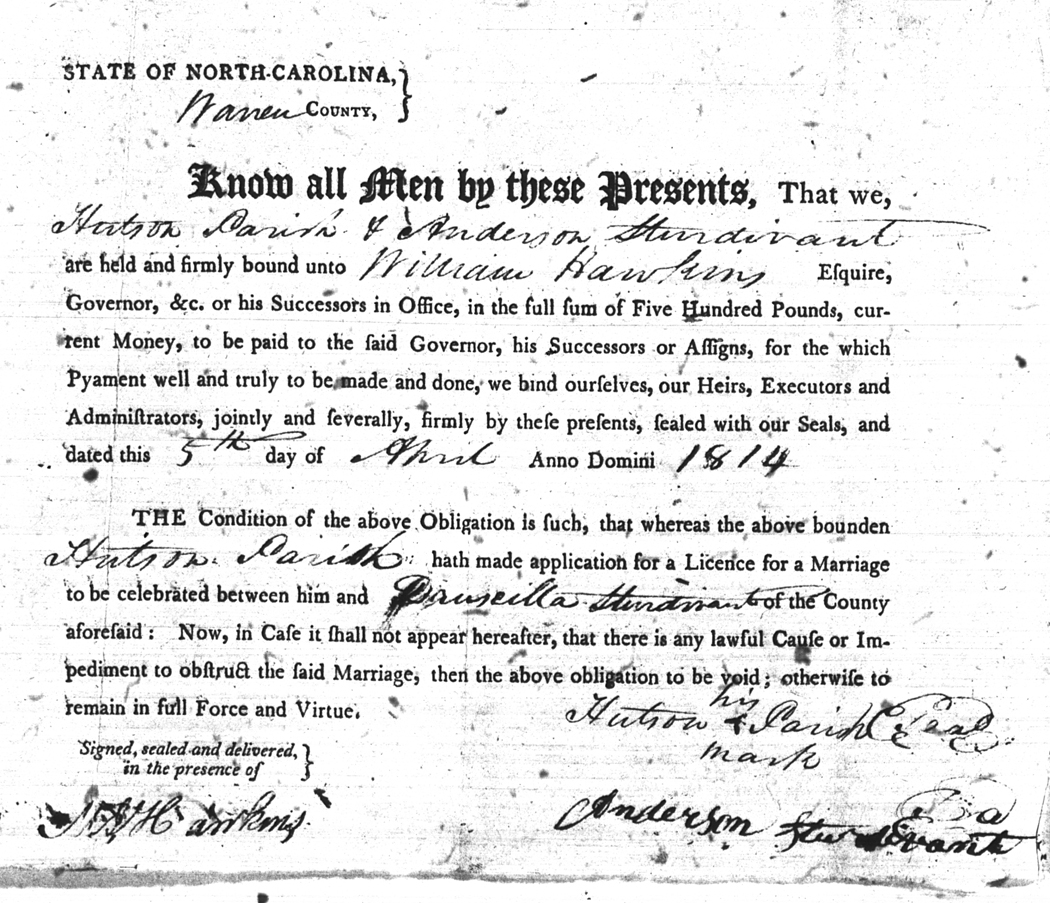 STATE OF NORTH-CAROLINA, }
Warren COUNTY, }
Know all Men by these Presents, That we,
Hutson Parish & Anderson Sturdivant
are held and firmly bound unto William Hawkins Eſquire,
Governor, &c. or his Successors in Office, in the full ſum of Five Hundred Pounds, cur-
rent Money, to be paid to the ſaid Governor, his Successors or Aſſigns, for the which
Pyament well and truly to be made and done, we bind ourſelves, our Heirs, Executors and
Adminiſtrators, jointly and ſeverally, firmly by theſe preſents, ſealed with our Seals, and
dated this 5th day of April Anno Domini 1814
THE Condition of the above Obligation is ſuch, that whereas the above bounden
Hutson Parish hath made application for a Licence for a Marriage
to be celebrated between him and Pruscilla Sturdivant of the County
aforeſaid: Now, in Caſe it ſhall not appear hereafter, that there is any lawful Cauſe or Im-
pediment to obſtruct the ſaid Marriage, then the above obligation to be void; otherwiſe to
remain in full Force and Virtue.
his
Hutson + Parish Seal
mark
Signed, sealed and delivered, }
in the presence of }
Hawkins
Anderson Sturdevant